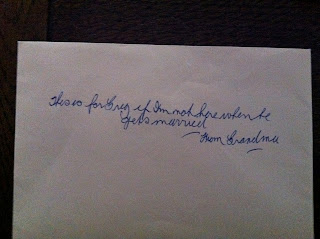 This is for Greg if I'm not here when he
gets married
From Grandma